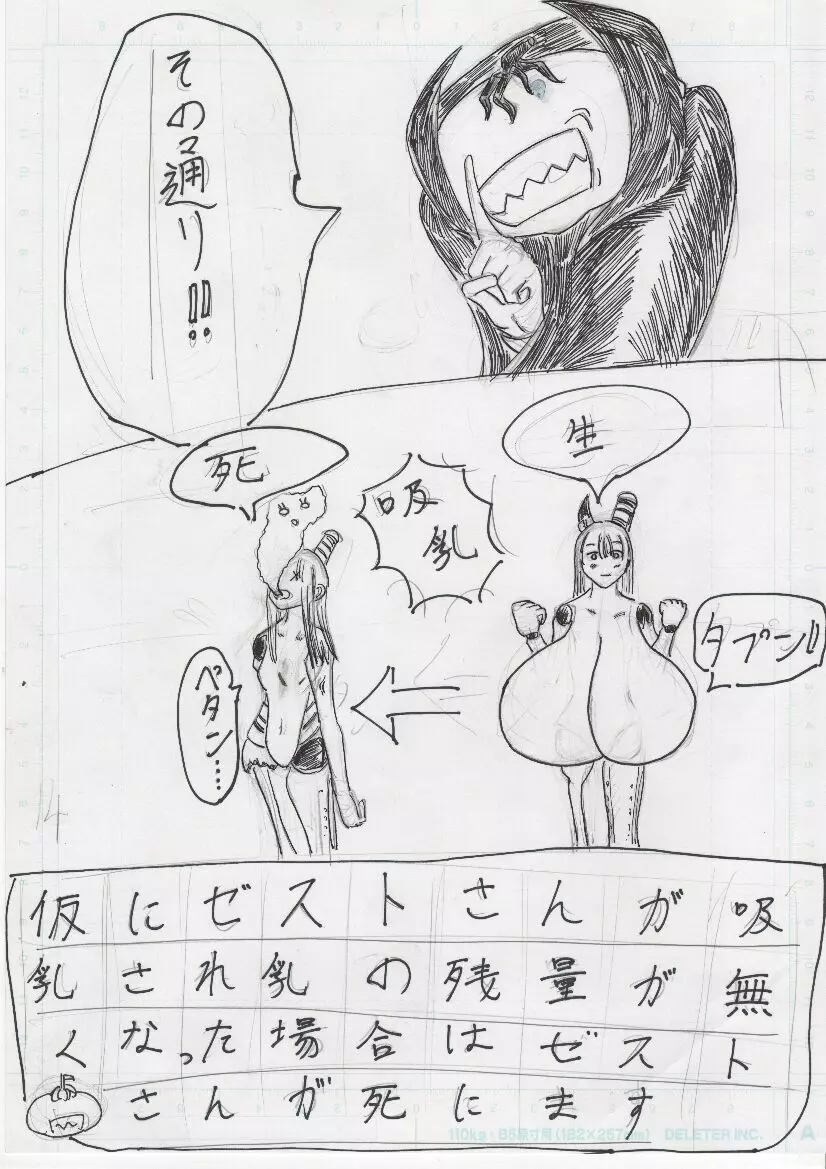 その通り!!
生
タプーン!!
吸
乳
死
ペタン……
仮にゼストさんが吸
乳され乳の残量が無
くなった場合はゼスト
さんが死にます
14
110kg・B5原寸用(182×257mm) DELETER INC. A